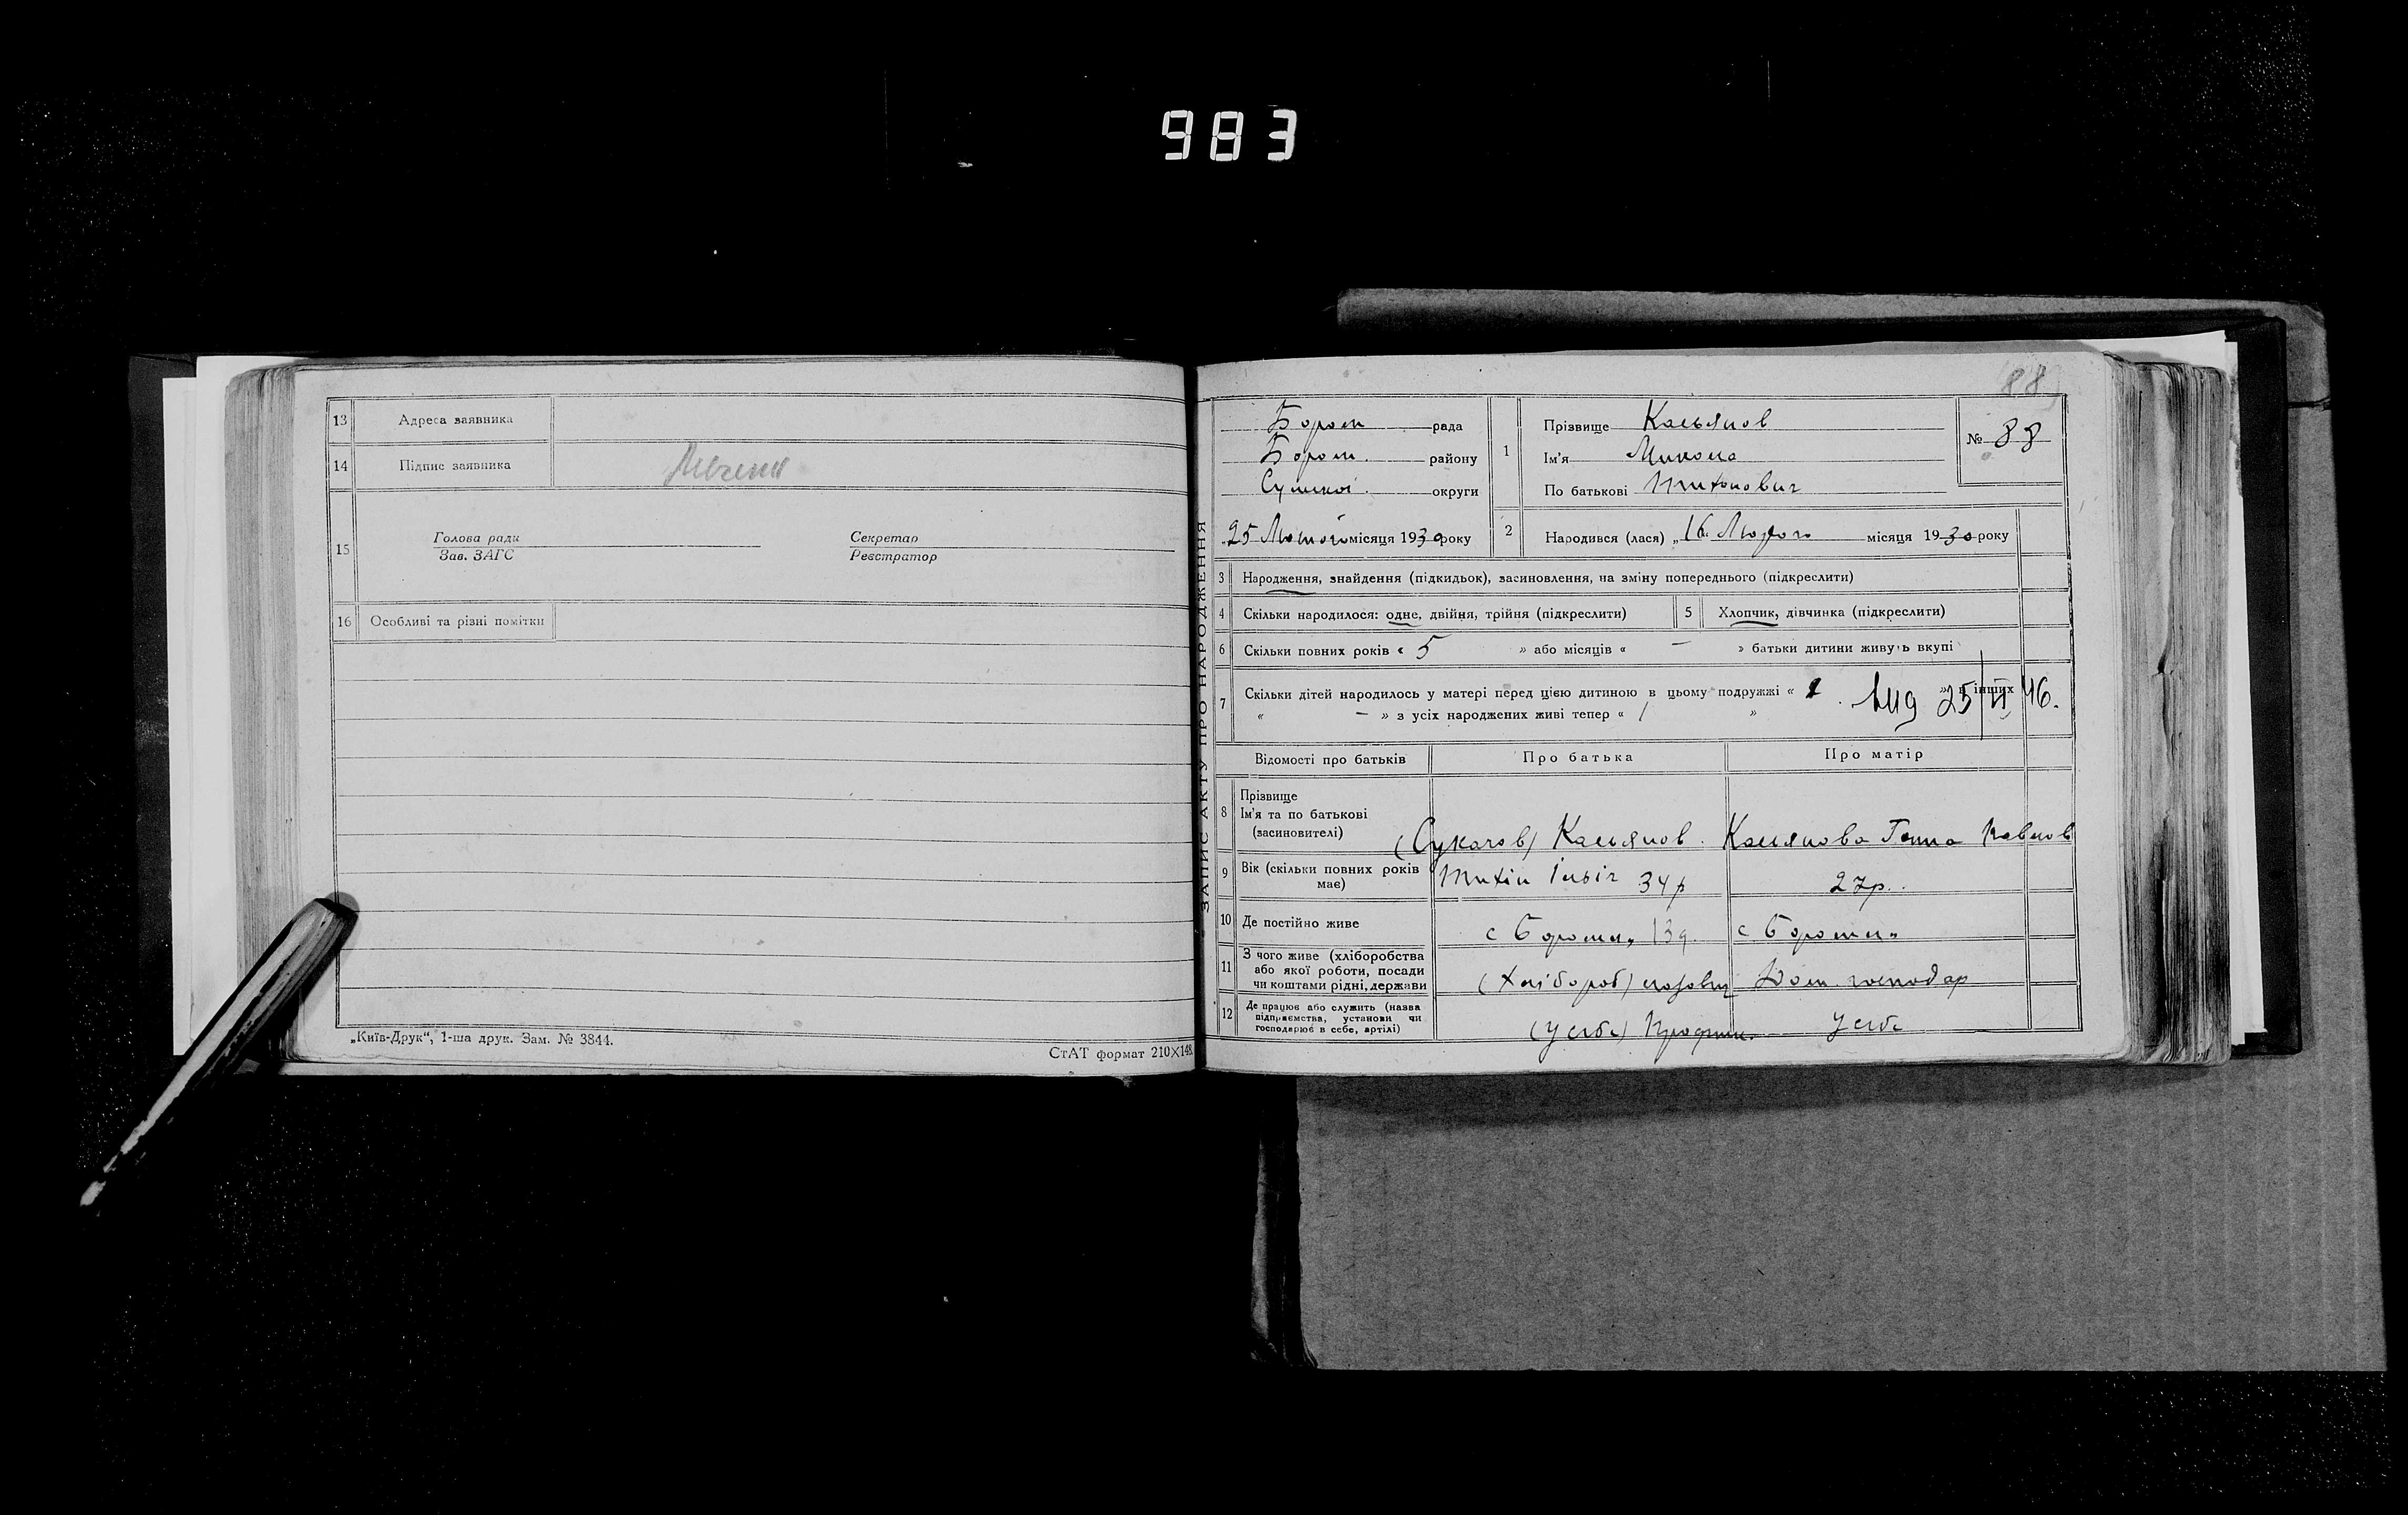 983
13 Адреса заявника
14 Підпис заявника
15 Голова ради Секретар
Зав. ЗАГС Реєстратор
16 Особливі та різні помітки
„Київ-Друк“, 1-ша друк. Зам. № 3844.
СтАТ формат 210×148
ЗАПИС АКТУ ПРО НАРОДЖЕННЯ
88
Бором рада
Бором. району
Сумської округи
„25 Лютого місяця 1930 року
1 Прізвище Касьянов
Ім'я Микола
По батькові Тихонович
№ 88
2 Народився (лася) „16 Лютого місяця 1930 року
3 Народження, знайдення (підкидьок), засиновлення, на зміну попереднього (підкреслити)
4 Скільки народилося: одне, двійня, трійня (підкреслити) 5 Хлопчик, дівчинка (підкреслити)
6 Скільки повних років « 5 » або місяців « — » батьки дитини живуть вкупі
7 Скільки дітей народилось у матері перед цією дитиною в цьому подружжі « 1 » в інших
« — » з усіх народжених живі тепер « 1 »
25/II 46.
Відомості про батьків Про батька Про матір
8 Прізвище
Ім'я та по батькові
(засиновителі)
(Сукачов) Касьянов. Касянова Ганна Павлов
9 Вік (скільки повних років має) Тихін 34 р 27 р.
10 Де постійно живе с Боромля с Боромля
11 З чого живе (хліборобства або якої роботи, посади чи коштами рідні, держави (Хлібороб) Дом. господар
12 Де працює або служить (назва підприємства, установи чи господарює в себе, артілі) (у себе) у себе